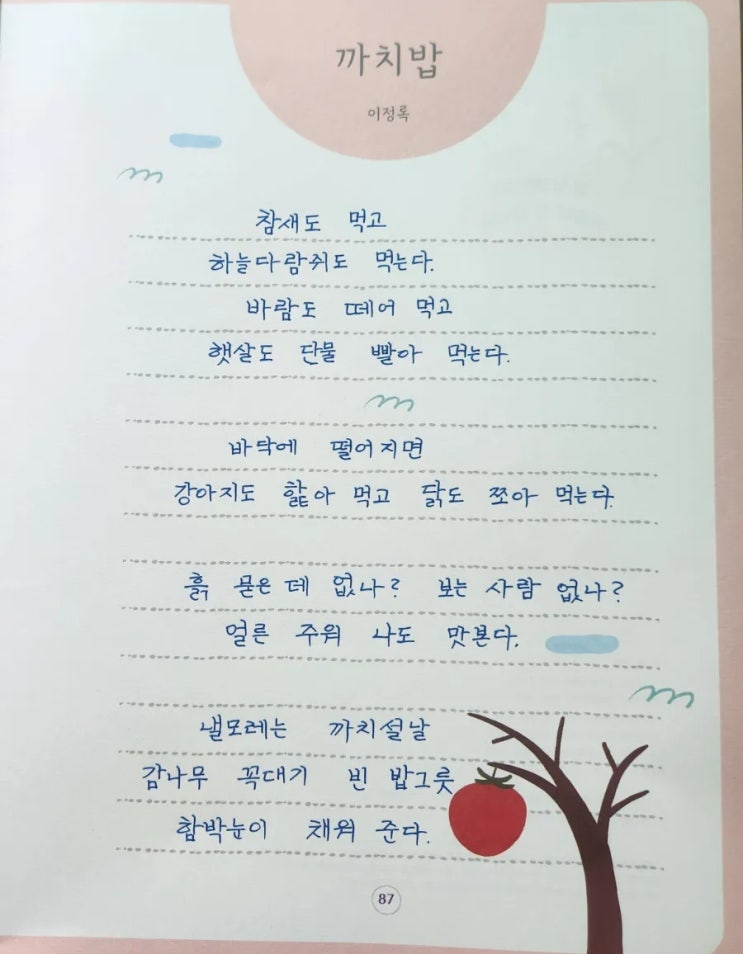 까치밥
이정록
참새도 먹고
하늘다람쥐도 먹는다.
바람도 떼어 먹고
햇살도 단물 빨아 먹는다.
바닥에 떨어지면
강아지도 핥아 먹고 닭도 쪼아 먹는다.
흙 묻은 데 없나? 보는 사람 없나?
얼른 주워 나도 맛본다.
낼모레는 까치설날
감나무 꼭대기 빈 밥그릇
함박눈이 채워 준다.
87